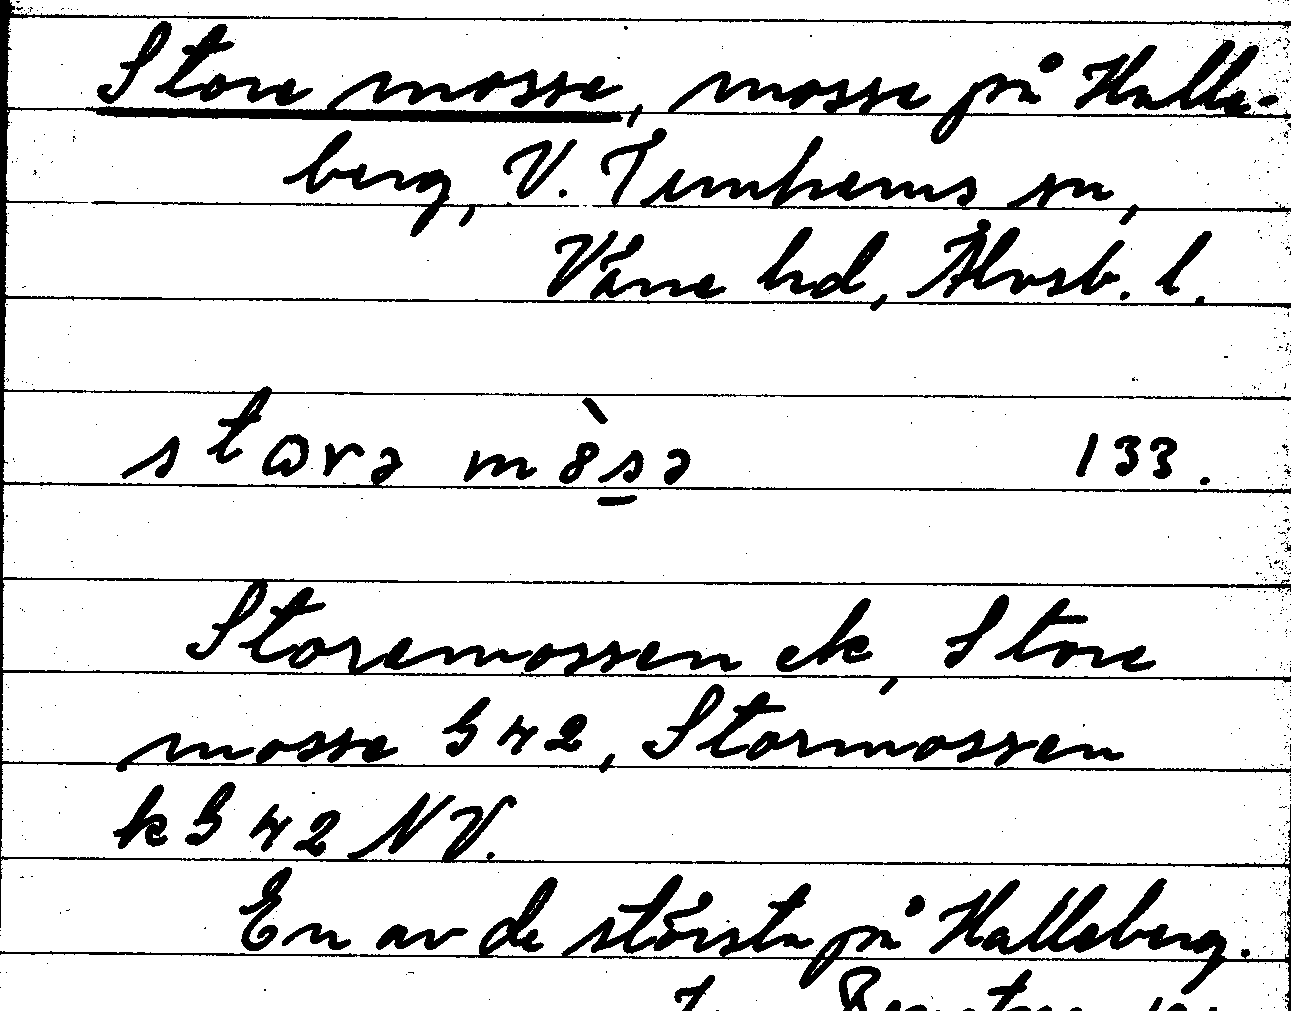 Store mosse, mosse på Halle-
berg, V. Tunhems sn,
Väne hd, Älvsb. l.
stωrə m8̀s̲ə 133.
Storemossen ek, Store
mosse G 42, Stormossen
k G 42 NV.
En av de största på Halleberg.